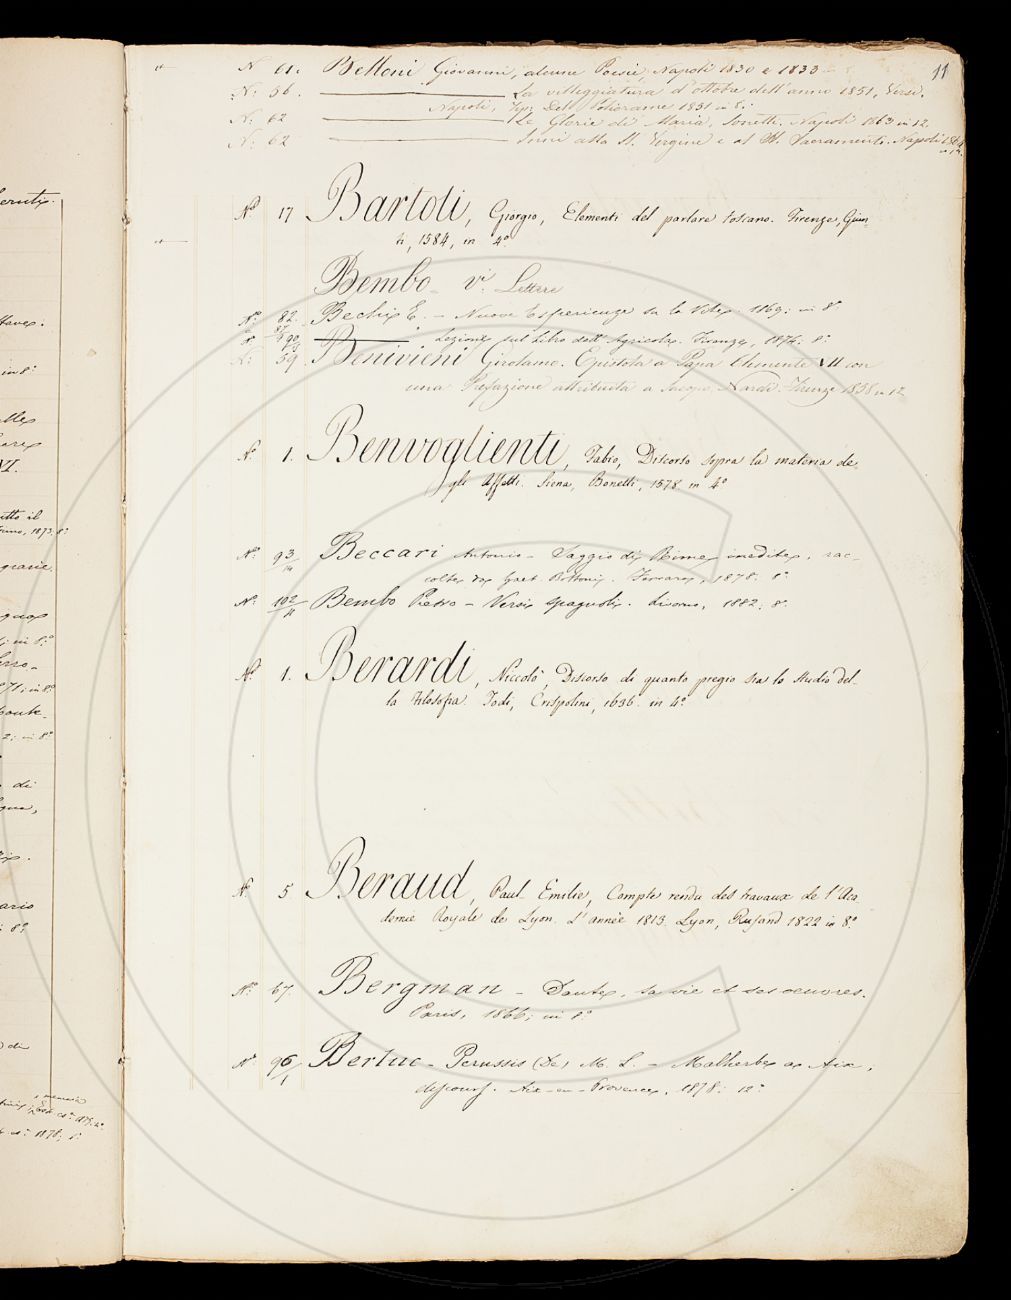 11
N. 61. Belloni Giovanni, alcune Poesie, Napoli 1830 e 1833
N.° 56. La villeggiatura d'ottobre dell'anno 1851, Versi.
Napoli, Tip. Dell' Poliorame 1851 in 8.°
N.° 62 Le Glorie di Maria, Sonetti. Napoli 1863 in 12.
N.° 62 Inni alla S. Vergine e al SS. Sacramento. Napoli 1864
in 12.
N.° 17 Bartoli, Giorgio, Elementi del parlare toscano. Firenze, Giun
ti, 1584, in 4.°
Bembo - Vi. Lettere
N.° 82. Bechi E. - Nuove Esperienze su la Vite. 1869; in 8.°
Lezione sul Libro dell'Agricola. Firenze, 1874. 8.°
N.° 59. Benivieni Girolamo. Epistola a Papa Clemente VII con
una Prefazione attribuita a Jacopo Nardi. Firenze 1858 in 12
N.° 1. Benvoglienti, Fabio, Discorso sopra la materia de-
gli Affetti. Siena, Bonetti, 1578 in 4.°
N.° 93 Beccari Antonio - Saggio di Rime inedite, rac-
colte da Gaet. Bottoni. Ferrara, 1878. 8.°
N.° 102 Bembo Pietro - Versi spagnoli. Livorno, 1882; 8.°
N.° 1. Berardi, Niccolò, Discorso di quanto pregio sia lo studio del-
la Filosofia. Todi, Crispolini, 1636. in 4.°
N.° 5 Beraud, Paul-Emilie, Compte rendu des travaux de l'Aca
demie Royale de Lyon. L'année 1813. Lyon, Rusand 1822 in 8.°
N.° 67. Bergman - Dante, sa vie et ses oeuvres.
Paris, 1866; in 8.°
N.° 96/1 Bertuc - Perussis (De) M. L. - Malherbe a Aix,
discours. Aix-en-Provence, 1878: 12.°